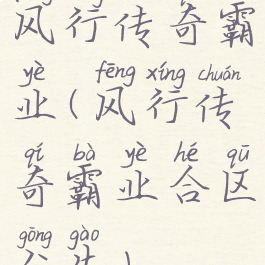 风行传奇霸
yè fēng xíng chuán
业(风行传
qí bà yè hé qū
奇霸业合区
gōng gào